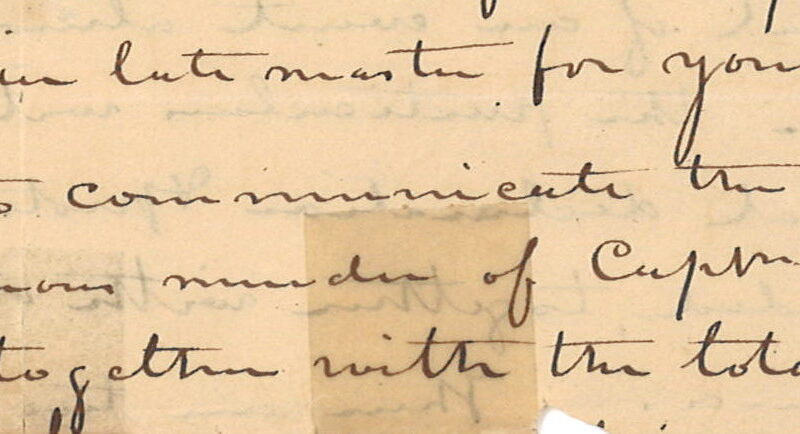 late master for you
communicate the
murder of Capt
together with the tota